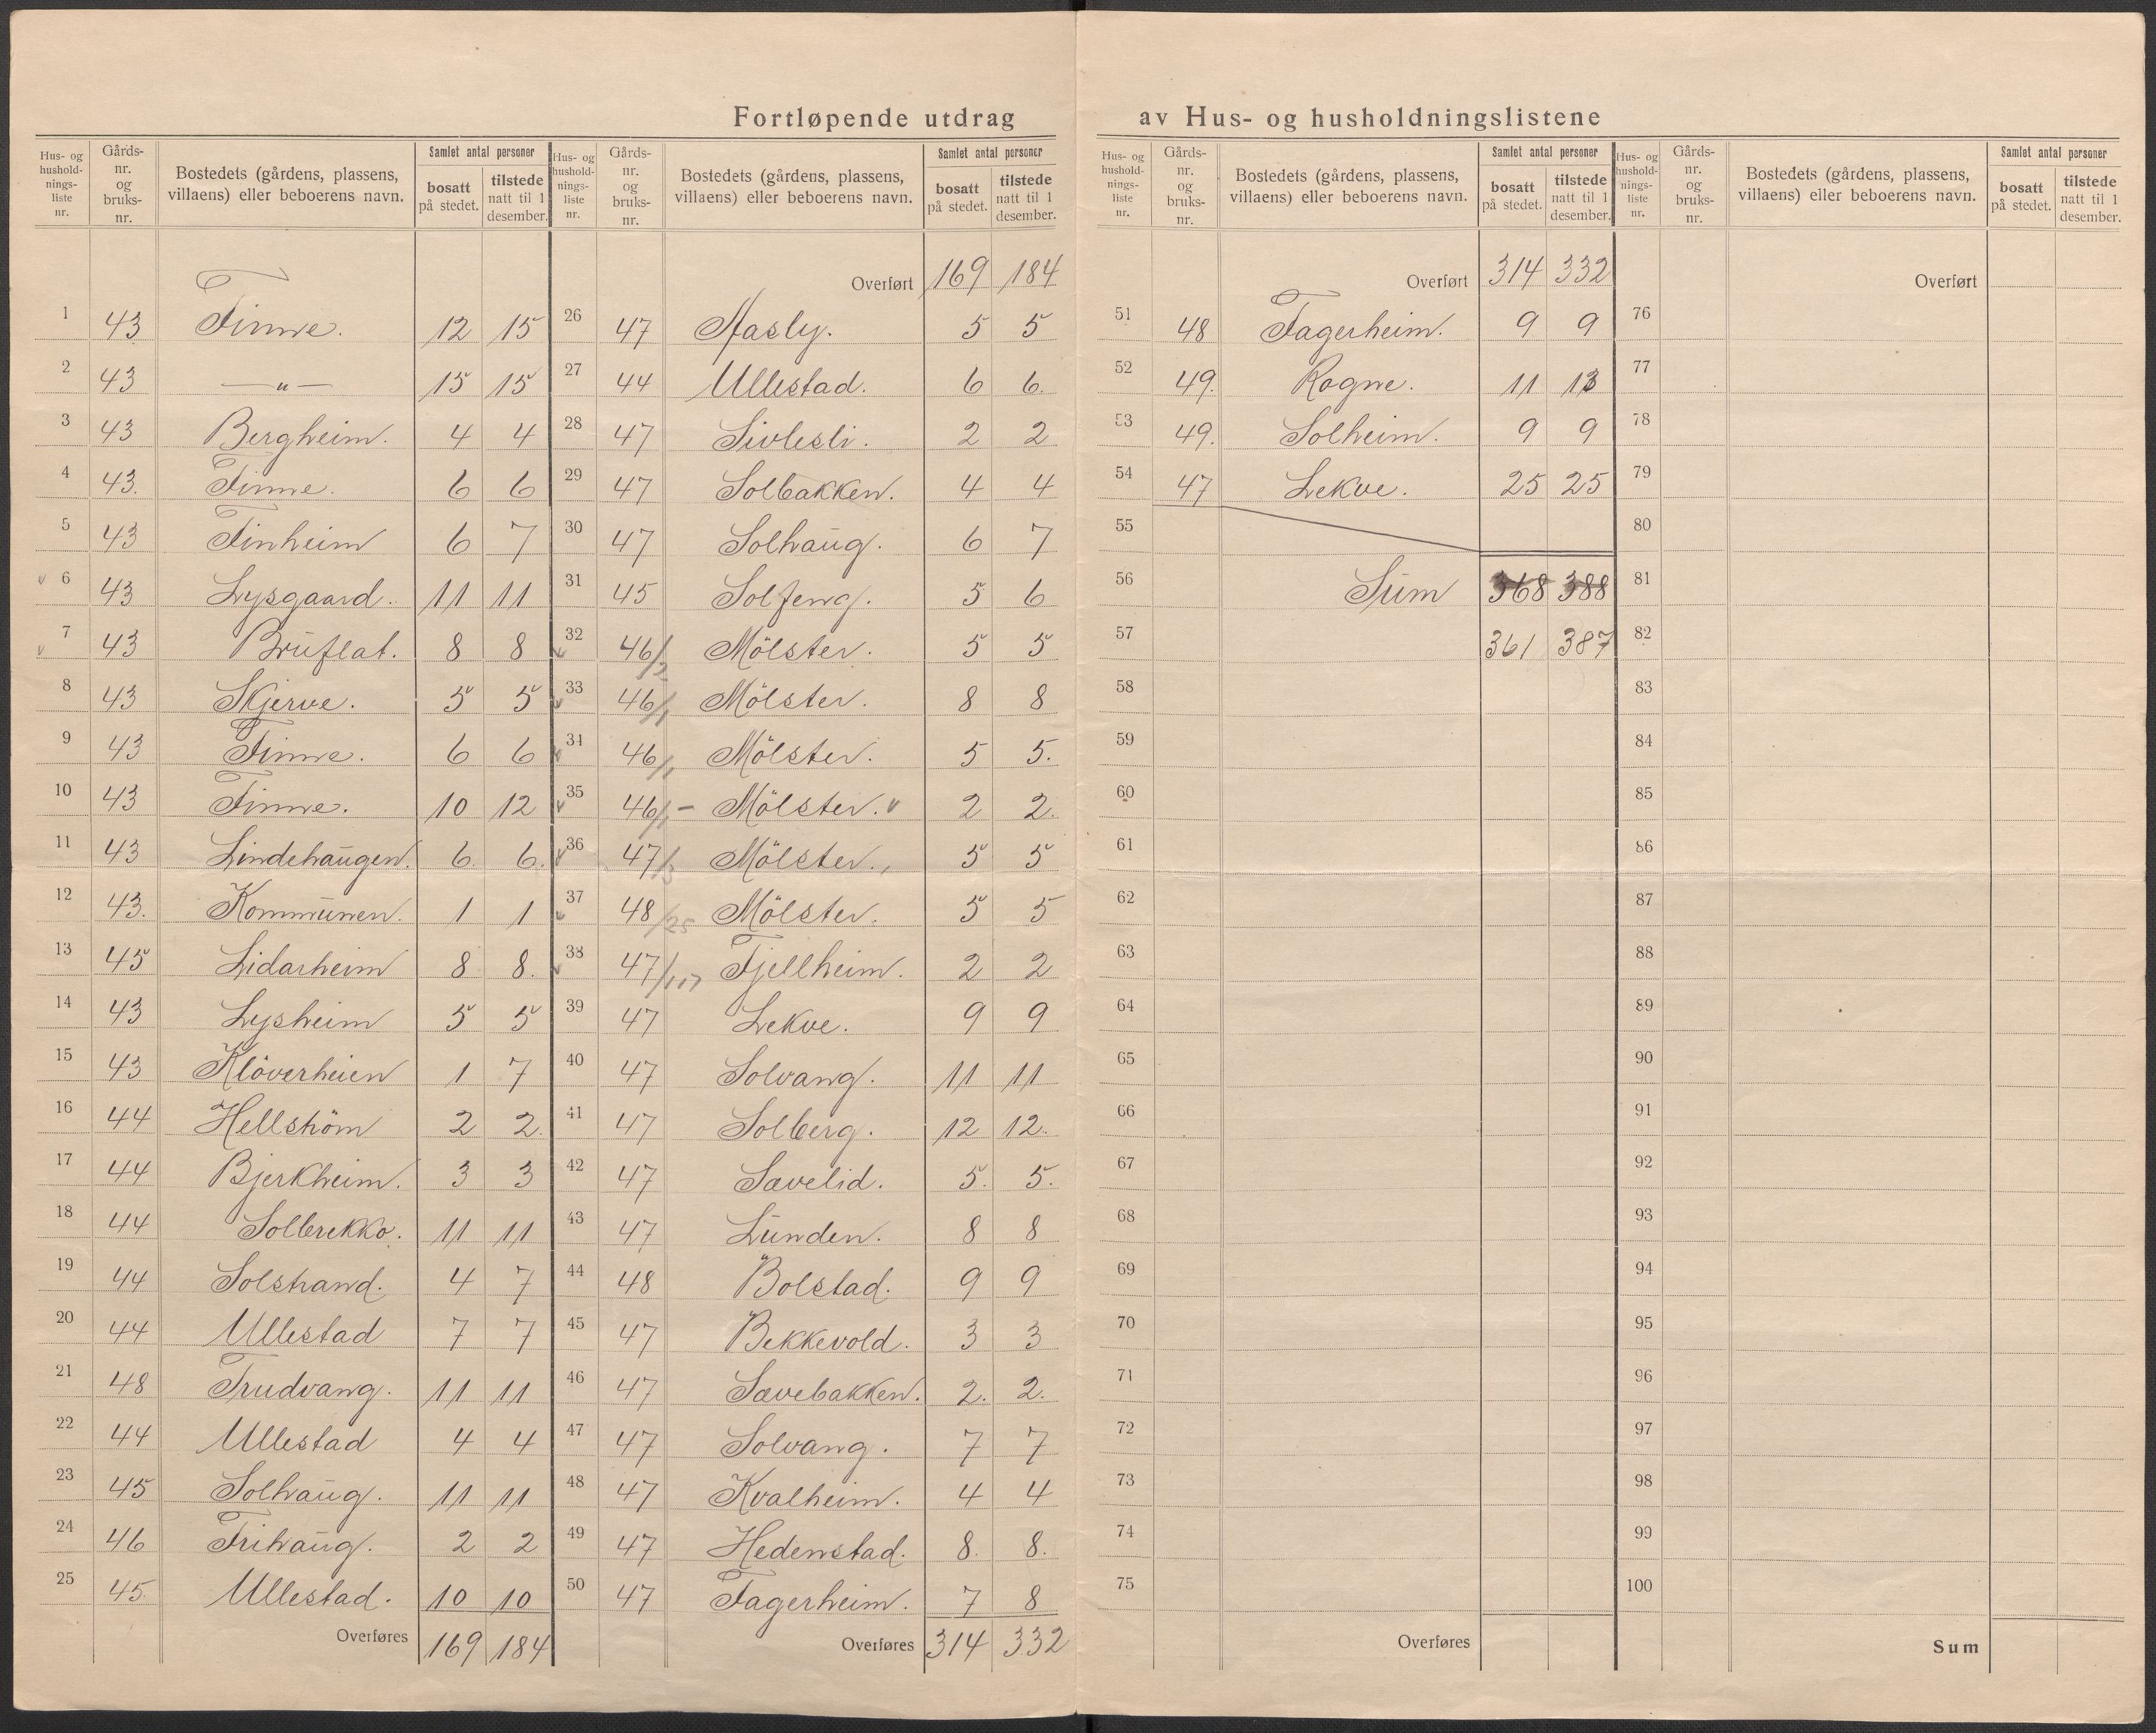 Fortløpende utdrag av Hus- og husholdningslistene
Hus- og hushold- nings- liste nr. | Gårds- nr. og bruks- nr. | Bostedets (gårdens, plassens, villaens) eller beboerens navn. | Samlet antal personer | bosatt på stedet. | tilstede natt til 1 desember.
1 43 Finne. 12 15
2 43 —"— 15 15
3 43 Bergheim. 4 4
4 43. Finne. 6 6
5 43 Finheim 6 7
v 6 43 Lysgaard. 11 11
7 v 43 Bruflat. 8 8
8 43 Skjerve. 5 5
9 43 Finne. 6 6
10 43 Finne. 10 12
11 43 Lindehaugen. 6. 6.
12 43. Kommunen. 1 1
13 45 Lidarheim 8 8.
14 43 Lysheim 5 5
15 43 Klöverheien 1 7
16 44 Hellström 2 2.
17 44 Bjerkheim. 3 3
18 44 Solbrekko. 11 11
19 44 Solstrand. 4 7
20 44 Ullestad 7 7
21 48 Trudvang. 11 11
22 44 Ullestad 4 4
23 45 Solhaug. 11 11
24 46 Trihaug. 2 2
25 45. Ullestad. 10 10
Overføres 169 184
Hus- og hushold- nings- liste nr. | Gårds- nr. og bruks- nr. | Bostedets (gårdens, plassens, villaens) eller beboerens navn. | Samlet antal personer | bosatt på stedet. | tilstede natt til 1 desember.
Overført 169 184
26 47 Aasly. 5 5
27 44 Ullestad. 6 6.
28 47 Sivlesli. 2 2
29 47 Solbakken. 4 4
30 47 Solhaug. 6 7
31 45 Solfeng. 5 6
32 v 46/2 Mölster. 5 5
33 v 46/1 Mölster. 8 8
34 v 46/1 Mölster. 5 5.
35 v 46/1 – Mölster. v 2 2.
v 36 47/3 Mölster. 5 5
37 v 48/25 Mölster. 5 5
38 v 47/117 Fjellheim. 2 2
39 47 Lekve. 9 9
40 47 Solvang. 11 11
41 47 Solberg. 12 12.
42 47 Sævelid. 5. 5.
43 47 Lunden. 8 8
44 48 Bolstad. 9 9
45 47 Bekkevold. 3 3
46 47 Sævebakken. 2. 2.
47 47 Solvang. 7 7
48 47 Kvalheim. 4 4
49 47 Hedenstad. 8. 8.
50 47 Fagerheim. 7 8
Overføres 314 332
Hus- og hushold- nings- liste nr. | Gårds- nr. og bruks- nr. | Bostedets (gårdens, plassens, villaens) eller beboerens navn. | Samlet antal personer | bosatt på stedet. | tilstede natt til 1 desember.
Overført 314 332
51 48 Fagerheim. 9 9
52 49. Rogne. 11 13
53 49. Solheim. 9 9
54 47 Lekve. 25 25
55
56 Sum 368 388
57 361 387
58
59
60
61
62
63
64
65
66
67
68
69
70
71
72
73
74
75
Overføres
Hus- og hushold- nings- liste nr. | Gårds- nr. og bruks- nr. | Bostedets (gårdens, plassens, villaens) eller beboerens navn. | Samlet antal personer | bosatt på stedet. | tilstede natt til 1 desember.
Overført
76
77
78
79
80
81
82
83
84
85
86
87
88
89
90
91
92
93
94
95
96
97
98
99
100
Sum